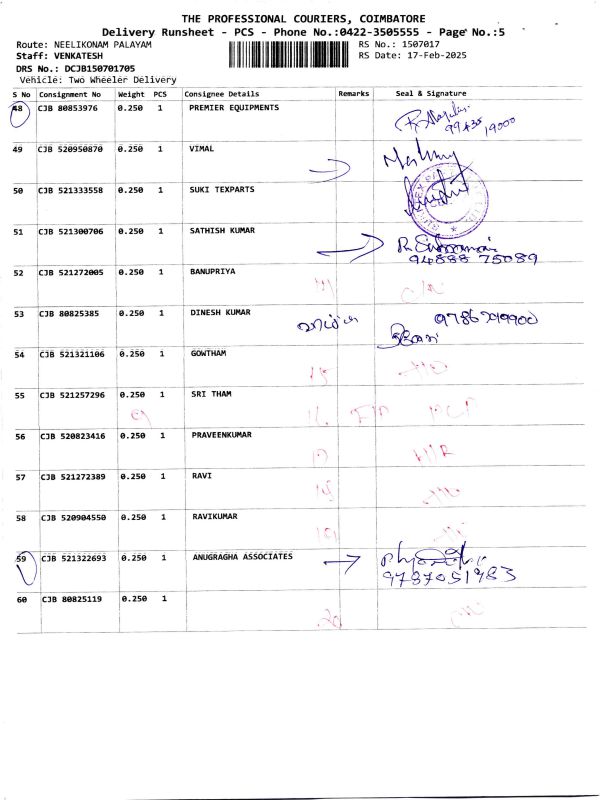 THE PROFESSIONAL COURIERS, COIMBATORE
Delivery Runsheet - PCS - Phone No.:0422-3505555 - Page No.:5
Route: NEELIKONAM PALAYAM
RS No.: 1507017
Staff: VENKATESH
RS Date: 17-Feb-2025
DRS No.: DCJB150701705
Vehicle: Two Wheeler Delivery
S No Consignment No Weight PCS Consignee Details Remarks Seal & Signature
48 CJB 80853976 0.250 1 PREMIER EQUIPMENTS
49 CJB 520950870 0.250 1 VIMAL
50 CJB 521333558 0.250 1 SUKI TEXPARTS
51 CJB 521300706 0.250 1 SATHISH KUMAR
94888 75089
52 CJB 521272005 0.250 1 BANUPRIYA
53 CJB 80825385 0.250 1 DINESH KUMAR
54 CJB 521321106 0.250 1 GOWTHAM
55 CJB 521257296 0.250 1 SRI THAM
56 CJB 520823416 0.250 1 PRAVEENKUMAR
57 CJB 521272389 0.250 1 RAVI
58 CJB 520904550 0.250 1 RAVIKUMAR
59 CJB 521322693 0.250 1 ANUGRAGHA ASSOCIATES
9787051983
60 CJB 80825119 0.250 1